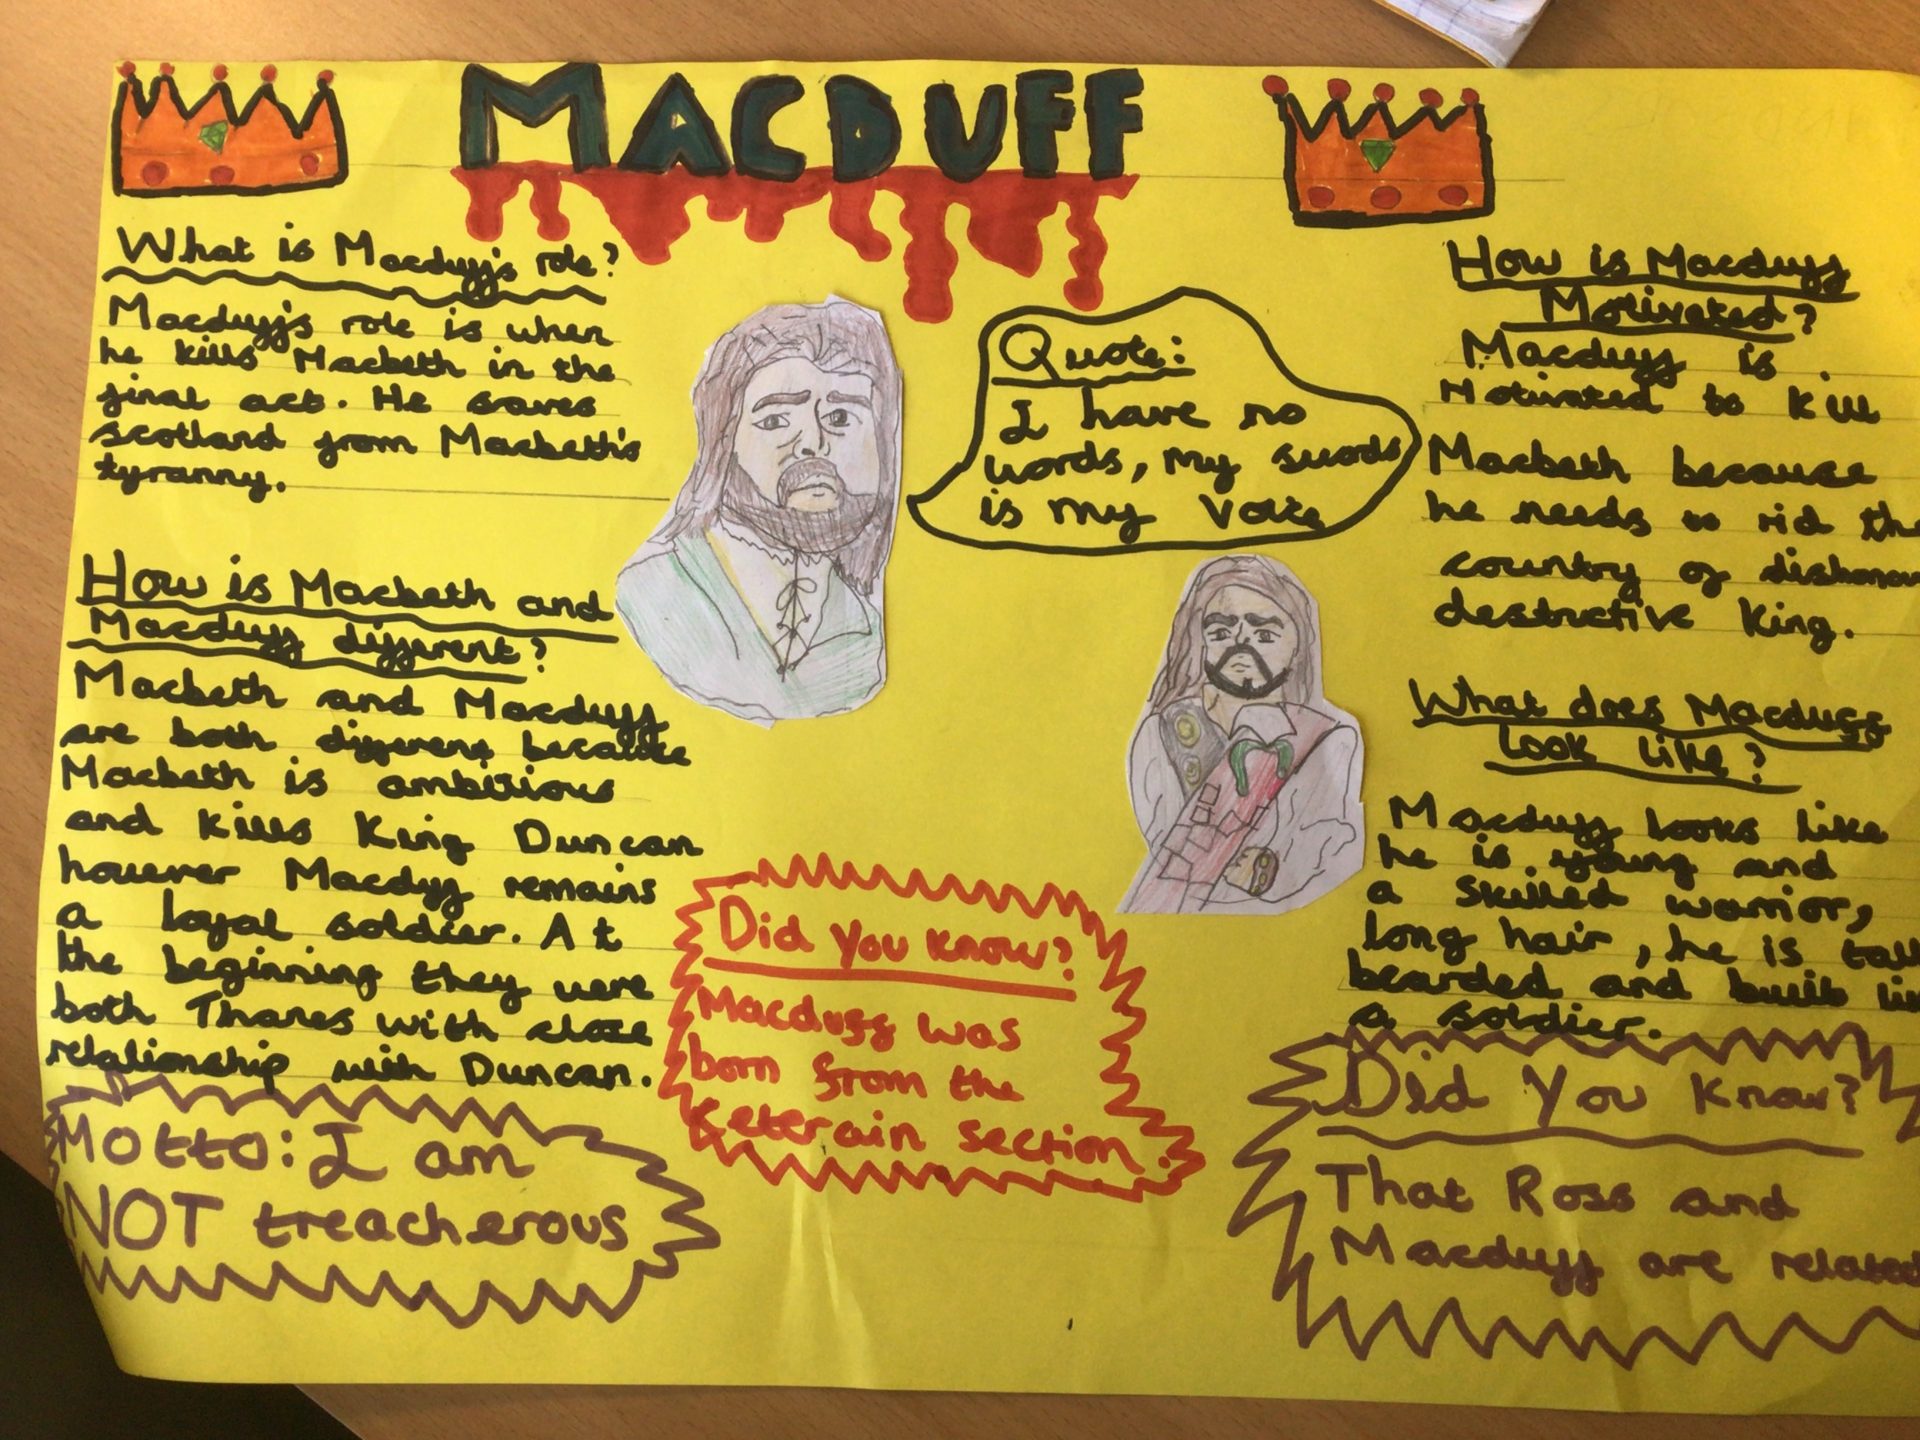 MACDUFF
What is Macduff's role?
Macduff's role is when
he kills Macbeth in the
final act. He saves
scotland from Macbeth's
tyranny.
How is Macbeth and
Macduff different?
Macbeth and Macduff
are both different because
Macbeth is ambitious
and kills King Duncan
however Macdyff remains
a loyal soldier. At
the beginning they were
both Thanes with close
relationship with Duncan.
Motto: I am
NOT treacherous
Quote:
I have no
words, my swords
is my voice
Did you know?
Macduff was
born from the
Keterain section.
How is Macduff
Motivated?
Macduff is
Motivated to kill
Macbeth because
he needs to rid the
country of dishonor
destructive King.
What does Macduff
look like?
Macduff looks like
he is young and
a skilled warrior,
long hair, he is tall
bearded and built li
a soldier.
Did You Know?
That Ross and
Macduff are related